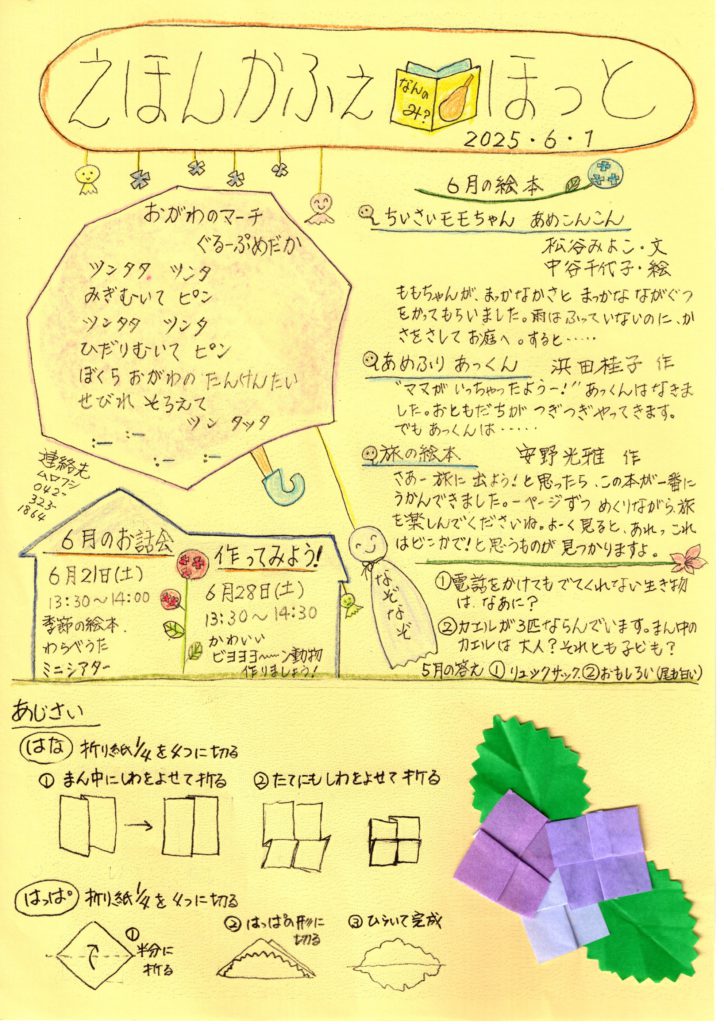 えほんかふぇ
なんの
み?
ほっと
2025・6・1
おがわのマーチ
ぐるーぷめだか
ツンタタ ツンタ
みぎむいて ピン
ツンタタ ツンタ
ひだりむいて ピン
ぼくら おがわの たんけんたい
せびれ そろえて
ツン タッタ
連絡先
ムロフシ
042-
323-
1864
6月のお話会
6月21日(土)
13:30~14:00
季節の絵本
わらべうた
ミニシアター
作ってみよう!
6月28日(土)
13:30~14:30
かわいい
ビヨヨヨ~~ン動物
作りましょう!
6月の絵本
ちいさいモモちゃん あめこんこん
松谷みよこ・文
中谷千代子・絵
ももちゃんが、まっかなかさと まっかな ながぐつ
をかってもらいました。雨は ふっていないのに、か
さをさして お庭へ。すると・・・・・
あめふり あっくん 浜田桂子 作
"ママが いっちゃったようー!" あっくんは なきま
した。おともだちが つぎつぎやってきます。
でも あっくんは・・・・・・
旅の絵本 安野光雅 作
さあー 旅に 出よう!と思ったら、この本が一番に
うかんできました。一ページずつ めくりながら、旅
を楽しんでくださいね。よーく見ると、あれっ これ
はどこかで!と思うものが 見つかりますよ。
なぞなぞ
①電話をかけてもでてくれない生き物
は、なあに?
②カエルが3匹ならんでいます。まん中の
カエルは 大人?それとも子ども?
5月の答え ①リュックサック ②おもしろい(尾も白い)
あじさい
はな 折り紙1/4を4つに切る
①まん中にしわをよせて折る
②たてにもしわをよせて折る
はっぱ 折り紙1/4を4つに切る
①半分に
折る
②はっぱの形に
切る
③ひらいて完成